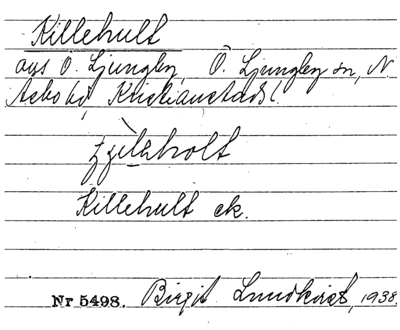 Killehult
avs Ö. Ljungby, Ö. Ljungby sn, N.
Åsbo hd, Kristianstads l.
Killehult ek.
Nr 5498. Birgit Lundkvist, 1938.